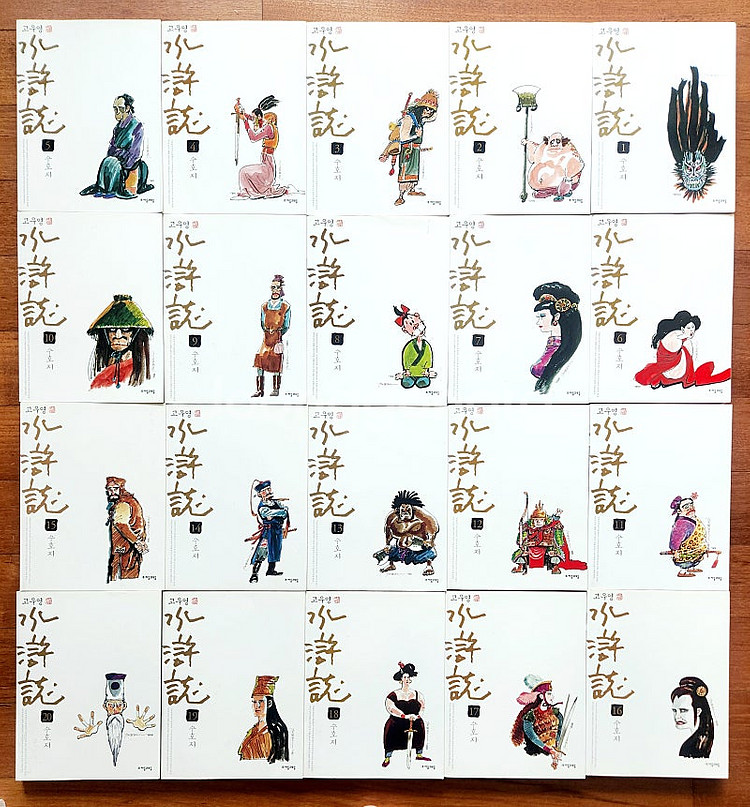 고우영
水滸誌
5
수호지
고우영
水滸誌
4
수호지
고우영
水滸誌
3
수호지
고우영
水滸誌
2
수호지
고우영
水滸誌
1
수호지
고우영
水滸誌
10
수호지
고우영
水滸誌
9
수호지
고우영
水滸誌
8
수호지
고우영
水滸誌
7
수호지
고우영
水滸誌
6
수호지
고우영
水滸誌
15
수호지
고우영
水滸誌
14
수호지
고우영
水滸誌
13
수호지
고우영
水滸誌
12
수호지
고우영
水滸誌
11
수호지
고우영
水滸誌
20
수호지
고우영
水滸誌
19
수호지
고우영
水滸誌
18
수호지
고우영
水滸誌
17
수호지
고우영
水滸誌
16
수호지